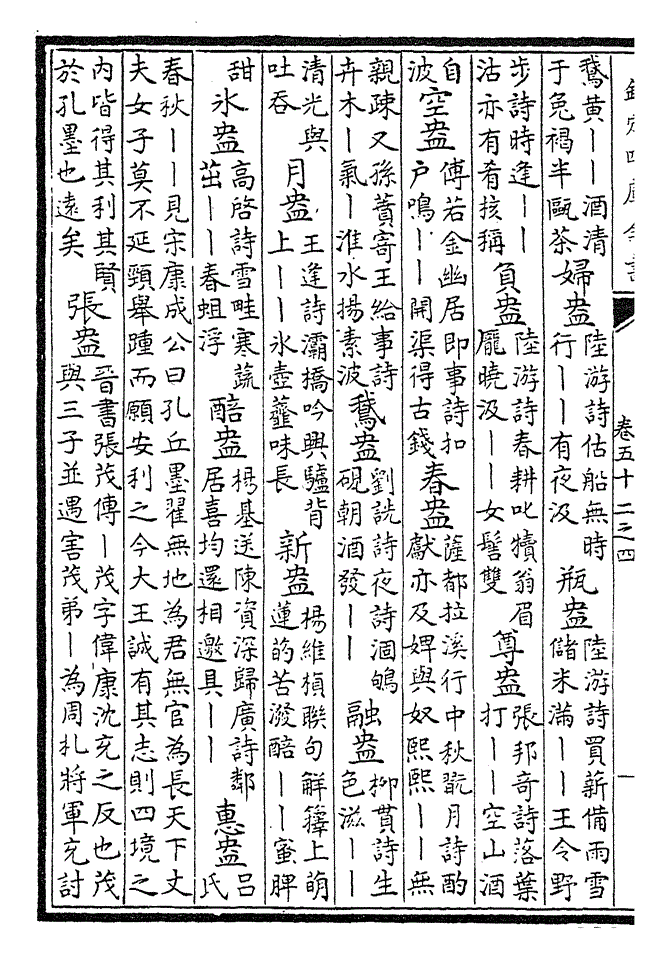 欽定四庫全書 卷五十二之四 一
鵞黃丨丨酒清于兔褐半甌茶 婦盎 陸游詩估船無時行丨丨有夜汲 瓶盎 陸游詩買薪備雨雪儲米滿丨丨王令野
步詩時逢丨丨沽亦有肴核稱 負盎 陸游詩春耕叱犢翁眉龎曉汲丨丨女髻雙 尊盎 張邦奇詩落葉打丨丨空山酒
自波 空盎 傅若金幽居即事詩扣户鳴丨丨開渠得古錢 春盎 薩都拉溪行中秋翫月詩酌獻亦及婢與奴熙熙丨丨無
親疎又孫蕡寄王給事詩卉木丨氣丨淮水揚素波 鵞盎 劉詵詩夜詩涸鴝硯朝酒發丨丨 融盎 柳貫詩生色滋丨丨
清光與吐吞 月盎 王逢詩灞橋吟興驢背上丨丨氷壺虀味長 新盎 楊維楨聯句觧籜上萌蓮菂苦潑醅丨丨蜜脾
甜 氷盎 高啓詩雪畦寒蔬茁丨丨春蛆浮 醅盎 楊基送陳資深歸廣詩鄰居喜均還相邀具丨丨 惠盎 吕氏
春秋丨丨見宋康成公曰孔丘墨翟無地為君無官為長天下丈夫女子莫不延頸舉踵而願安利之今大王誠有其志則四境之
内皆得其利其賢於孔墨也遠矣 張盎 晉書張茂傳丨茂字偉康沈充之反也茂與三子並遇害茂弟丨為周札將軍充討